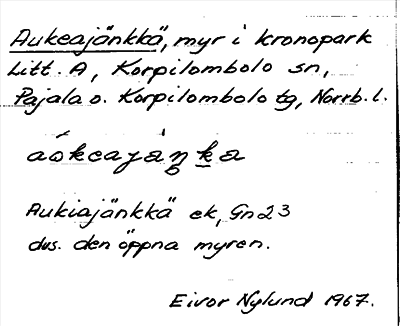 Aukeajänkkä, myr i kronopark
Litt. A, Korpilombolo sn,
Pajala o. Korpilombolo tg, Norrb. l.
aòkeajàŋka
Aukiajänkkä ek, Gn 23
dvs. den öppna myren.
Eivor Nylund 1967.